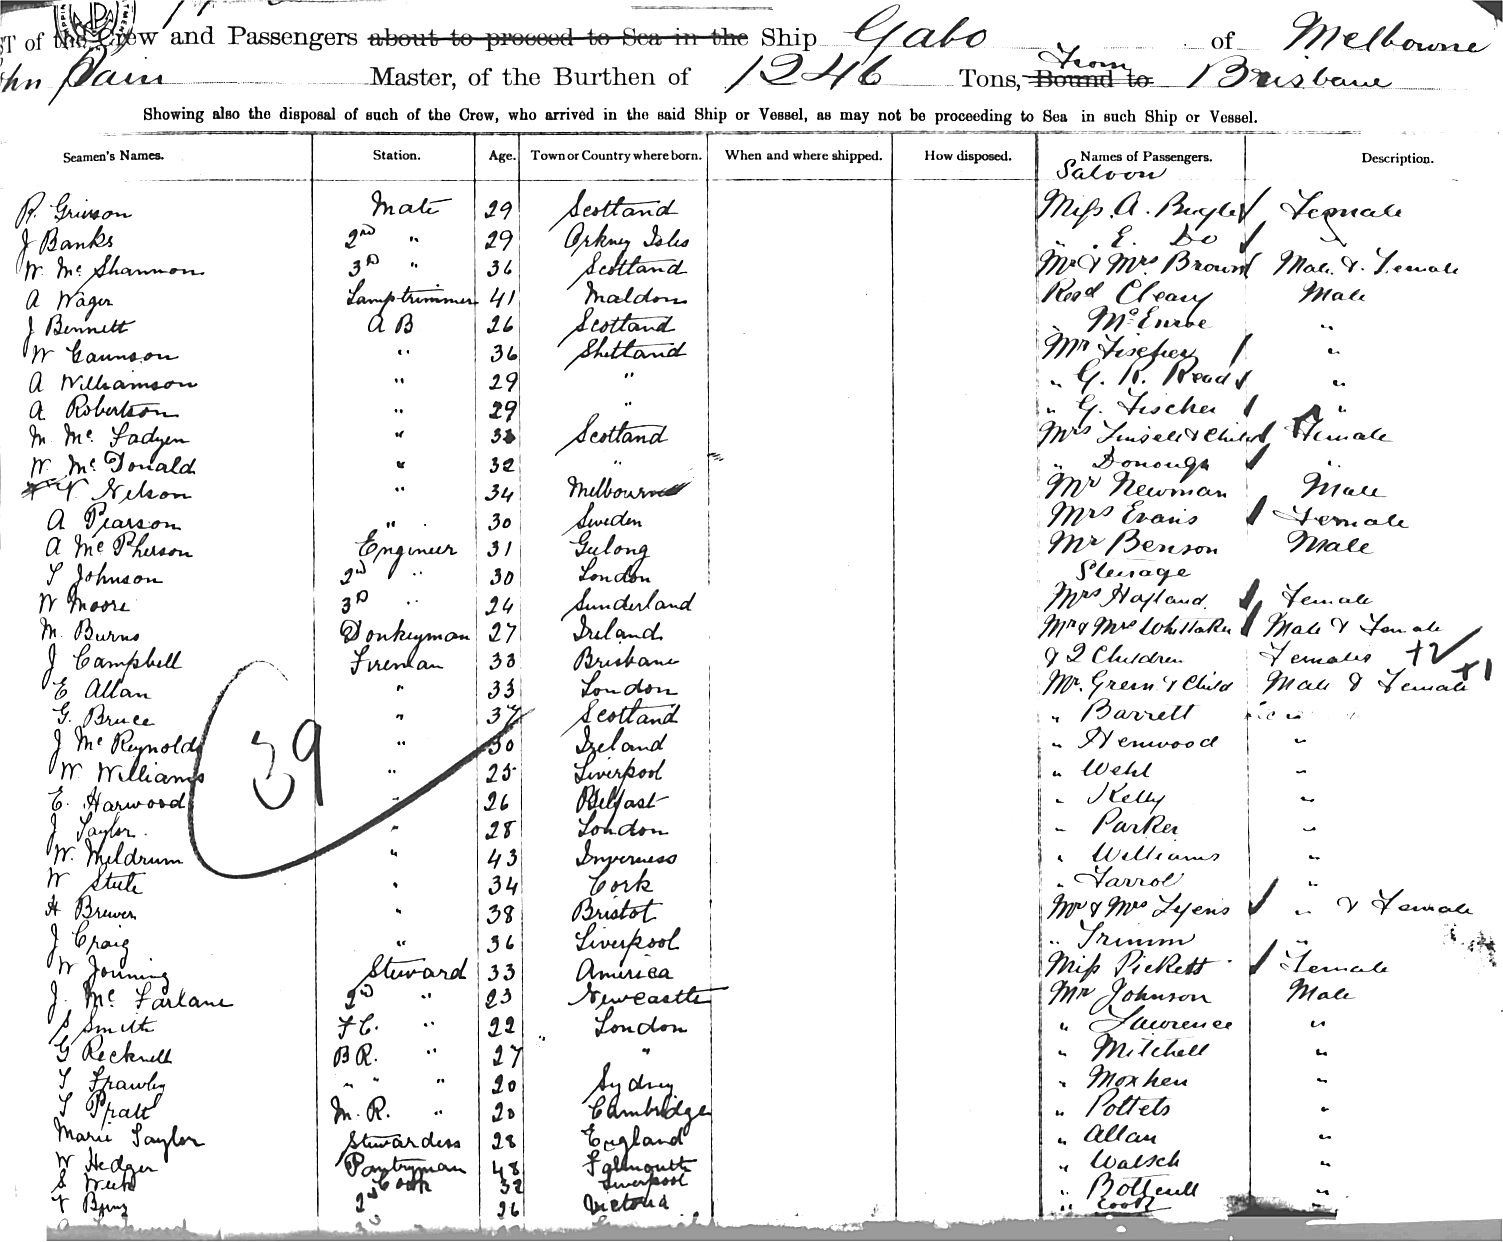 ST of the Crew and Passengers about to proceed to Sea in the Ship Gabo of Melbourne
ohn Pain Master, of the Burthen of 1246 Tons, Bound to From Brisbane
Showing also the disposal of such of the Crew, who arrived in the said Ship or Vessel, as may not be proceeding to Sea in such Ship or Vessel.
Seamen's Names. Station. Age. Town or Country where born. When and where shipped. How disposed. Names of Passengers. Description.
Saloon
R. Grierson Mate 29 Scotland Miss A. Female
J Banks 2nd " 29 Orkney Isles " E. Do
W. Mc Shannon 3D " 36 Scotland Mr & Mrs Brown Male & Female
A Wager Lamptrimmer 41 Maldon Revd Cleary Male
J Bennett A B 26 Scotland " McEnroe "
W Gaunson " 36 Shetland Mr Fischer "
A Williamson " 29 " " G. R. Read "
A Robertson " 29 " " G. Fischer "
M Mc Fadyen " Scotland Mrs & Child Female
W. Mc Donald " 32 " " Donough "
Nelson " 34 Melbourne Mr Newman Male
A Pearson " 30 Sweden Mrs Evans Female
A Mc Pherson Engineer 31 Geelong Mr Benson Male
Steerage
J Johnson 2nd " 30 London
W Moore 3D " 24 Sunderland Mrs Female
M. Burns Donkeyman 27 Ireland Mr & Mrs Whittaker Male & Female
J Campbell Fireman 38 Brisbane & 2 Children Females +2
E Allan " 33 London Mr. Green & Child Male & Female +1
G. Bruce " 37 Scotland " Barrett
J Mc Reynolds " 30 Ireland " Henwood "
39
W Williams " 25 Liverpool " Wehl "
E. Harwood " 26 Belfast " Kelly "
J Taylor " 28 London " Parker "
W. Meldrum " 43 Inverness " Williams "
W Steele " 34 Cork " Farrol "
H Brewer " 38 Bristol Mr & Mrs Lyens " & Female
J Craig " 36 Liverpool " Trimm "
W Steward 33 America Miss Pickett Female
J. Mc Farlane 2nd " 23 Newcastle Mr Johnson Male
S Smith F C. " 22 London " Lawrence "
G Recknell B R. " 27 " " Mitchell "
T Frawley " " " 20 Sydney " Moxhen "
T Pratt M. R. " 20 Cambridge " Pottets "
Marie Taylor Stewardess 28 England " Allan "
W Hedger Pantryman 48 Falmouth " Walsch "
S Cook 32 Liverpool " Botterill "
2nd " 26 Victoria " Cook "